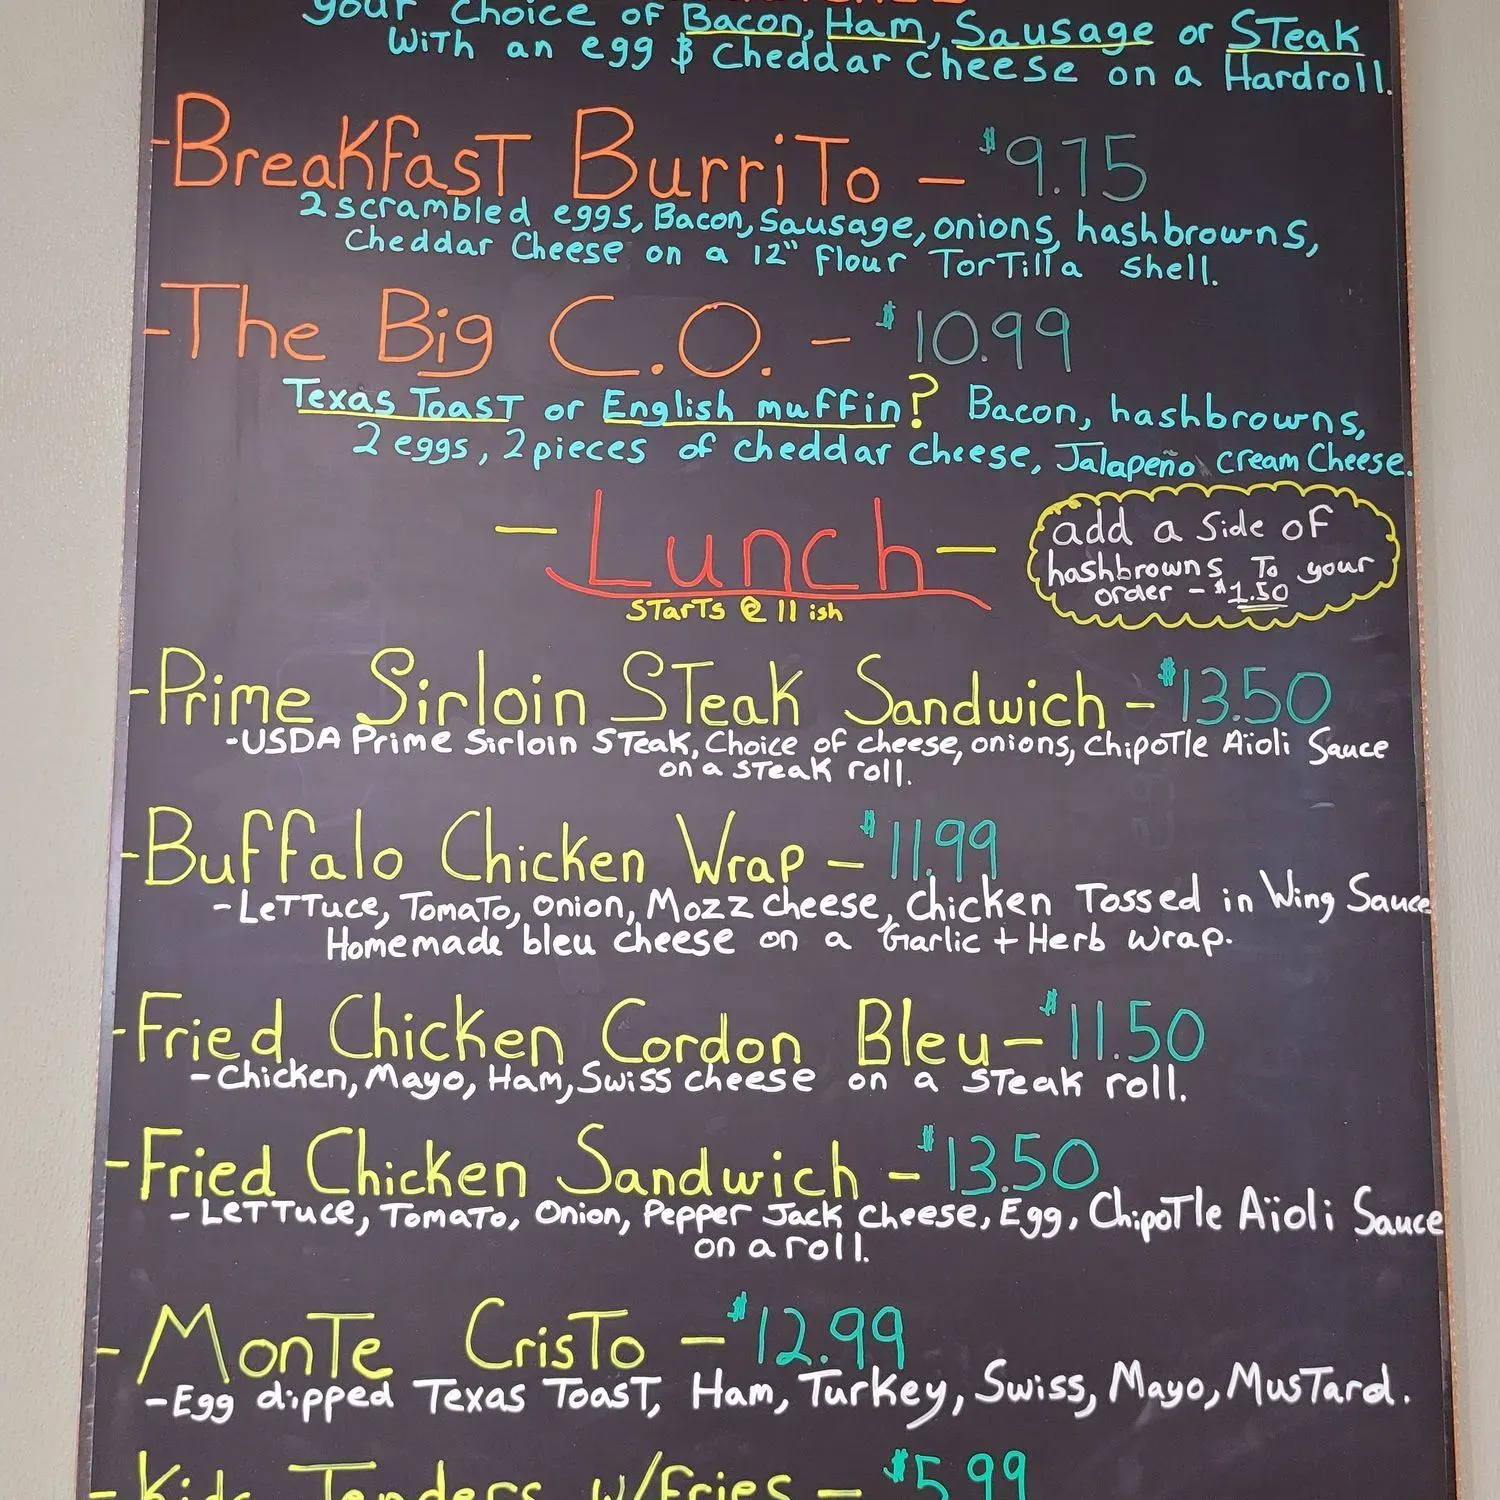 your choice of Bacon, Ham, Sausage or STeak
with an egg $ Cheddar cheese on a Hardroll.
-BreakfasT BurriTo - $9.75
2 scrambled eggs, Bacon, Sausage, onions, hashbrowns,
Cheddar Cheese on a 12" Flour TorTilla shell.
-The Big C.O. - $10.99
Texas ToasT or English muffin? Bacon, hashbrowns,
2 eggs, 2 pieces of cheddar cheese, Jalapeño cream Cheese.
- Lunch -
STarTs @ 11 ish
add a Side of
hashbrowns To your
order - $1.50
-Prime Sirloin STeak Sandwich - $13.50
-USDA Prime Sirloin STeak, Choice of cheese, onions, ChipoTle Aïoli Sauce
on a STeak roll.
-Buffalo Chicken Wrap - $11.99
-LeTTuce, TomaTo, Onion, Mozz cheese, Chicken Tossed in Wing Sauce
Homemade bleu cheese on a Garlic + Herb wrap.
-Fried Chicken Cordon Bleu - $11.50
-Chicken, Mayo, Ham, Swiss cheese on a STeak roll.
-Fried Chicken Sandwich - $13.50
-LeTTuce, TomaTo, Onion, Pepper Jack cheese, Egg, ChipoTle Aïoli Sauce
on a roll.
-MonTe CrisTo - $12.99
-Egg dipped Texas ToasT, Ham, Turkey, Swiss, Mayo, MusTard.
-Kids Tenders w/Fries - $5.99